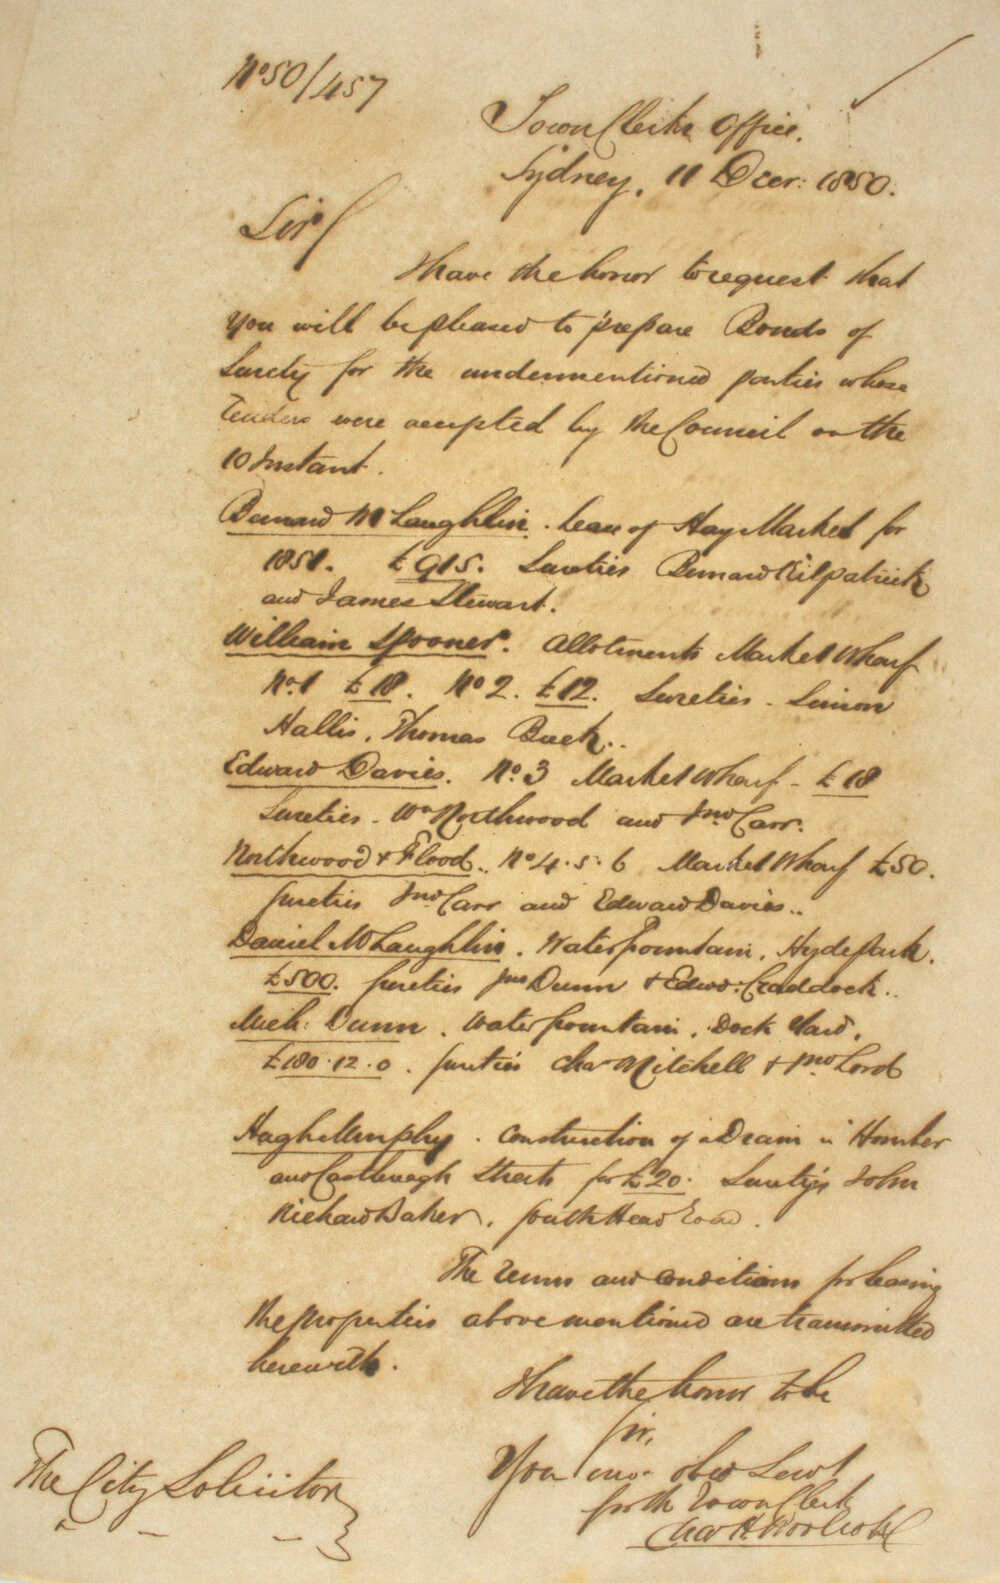 No 50/457
Town Clerks Office.
Sydney, 11 Decr: 1850.
Sir
I have the honor to request that
you will be pleased to prepare Bonds of
Surety for the undermentioned parties whose
Tenders were accepted by the Council on the
10 Instant.
Bernard McLaughlin. lease of Hay Market for
1851. £915. Sureties Bernard Kilpatrick
and James Stewart.
William Spooner. Allotments Market Wharf
No. 1 £18. No 2. £12. Sureties - Simon
Hallis, Thomas Buck..
Edward Davies. No. 3 Market Wharf - £18
Sureties - Wm Northwood and Jno Carr.
Northwood & Flood.. No 4.5.6 Market Wharf £50.
Sureties Jno Carr and Edward Davies..
Daniel McLaughlin. Water fountain, Hyde Park.
£500. Sureties Jno Dunn & Edwd: Craddock..
Mich: Dunn. Water fountain, Dock Yard,
£180.12.0. Sureties Chas Mitchell & Jno Lord
Hugh Murphy. Construction of a Drain in
and Castlereagh Streets for £20. Surety's John
Richard Baker, South Head Road.
The terms and conditions for leasing
the properties above mentioned are transmitted
herewith.
I have the honor to be
Sir,
Your mo. obed Servt
for the Town Clerk
Chas H. Woolcott
The City Solicitor